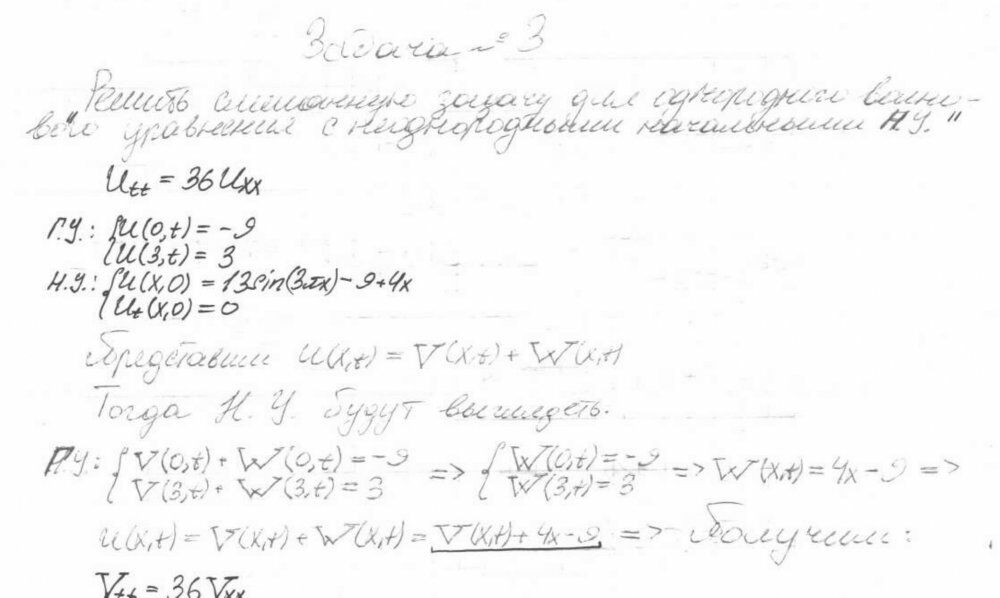 Задача № 3
"Решить смешанную задачу для однородного волно-
вого уравнения с неоднородными начальными Н.У."
Utt = 36Uxx
Г.У.: { U(0,t) = -9
U(3,t) = 3
Н.У.: { U(x,0) = 13sin(3πx) - 9 + 4x
Ut(x,0) = 0
Представим U(x,t) = V(x,t) + W(x,t)
Тогда Н.У. будут выглядеть.
Г.У.: { V(0,t) + W(0,t) = -9 => { W(0,t) = -9 => W(x,t) = 4x - 9 =>
V(3,t) + W(3,t) = 3 W(3,t) = 3
U(x,t) = V(x,t) + W(x,t) = V(x,t) + 4x - 9 => Получим:
Vtt = 36Vxx